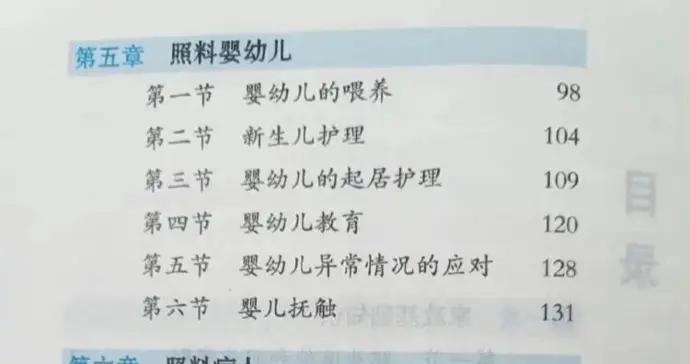 第五章 照料婴幼儿
第一节 婴幼儿的喂养 98
第二节 新生儿护理 104
第三节 婴幼儿的起居护理 109
第四节 婴幼儿教育 120
第五节 婴幼儿异常情况的应对 128
第六节 婴儿抚触 131
第六章 照料病人
目录